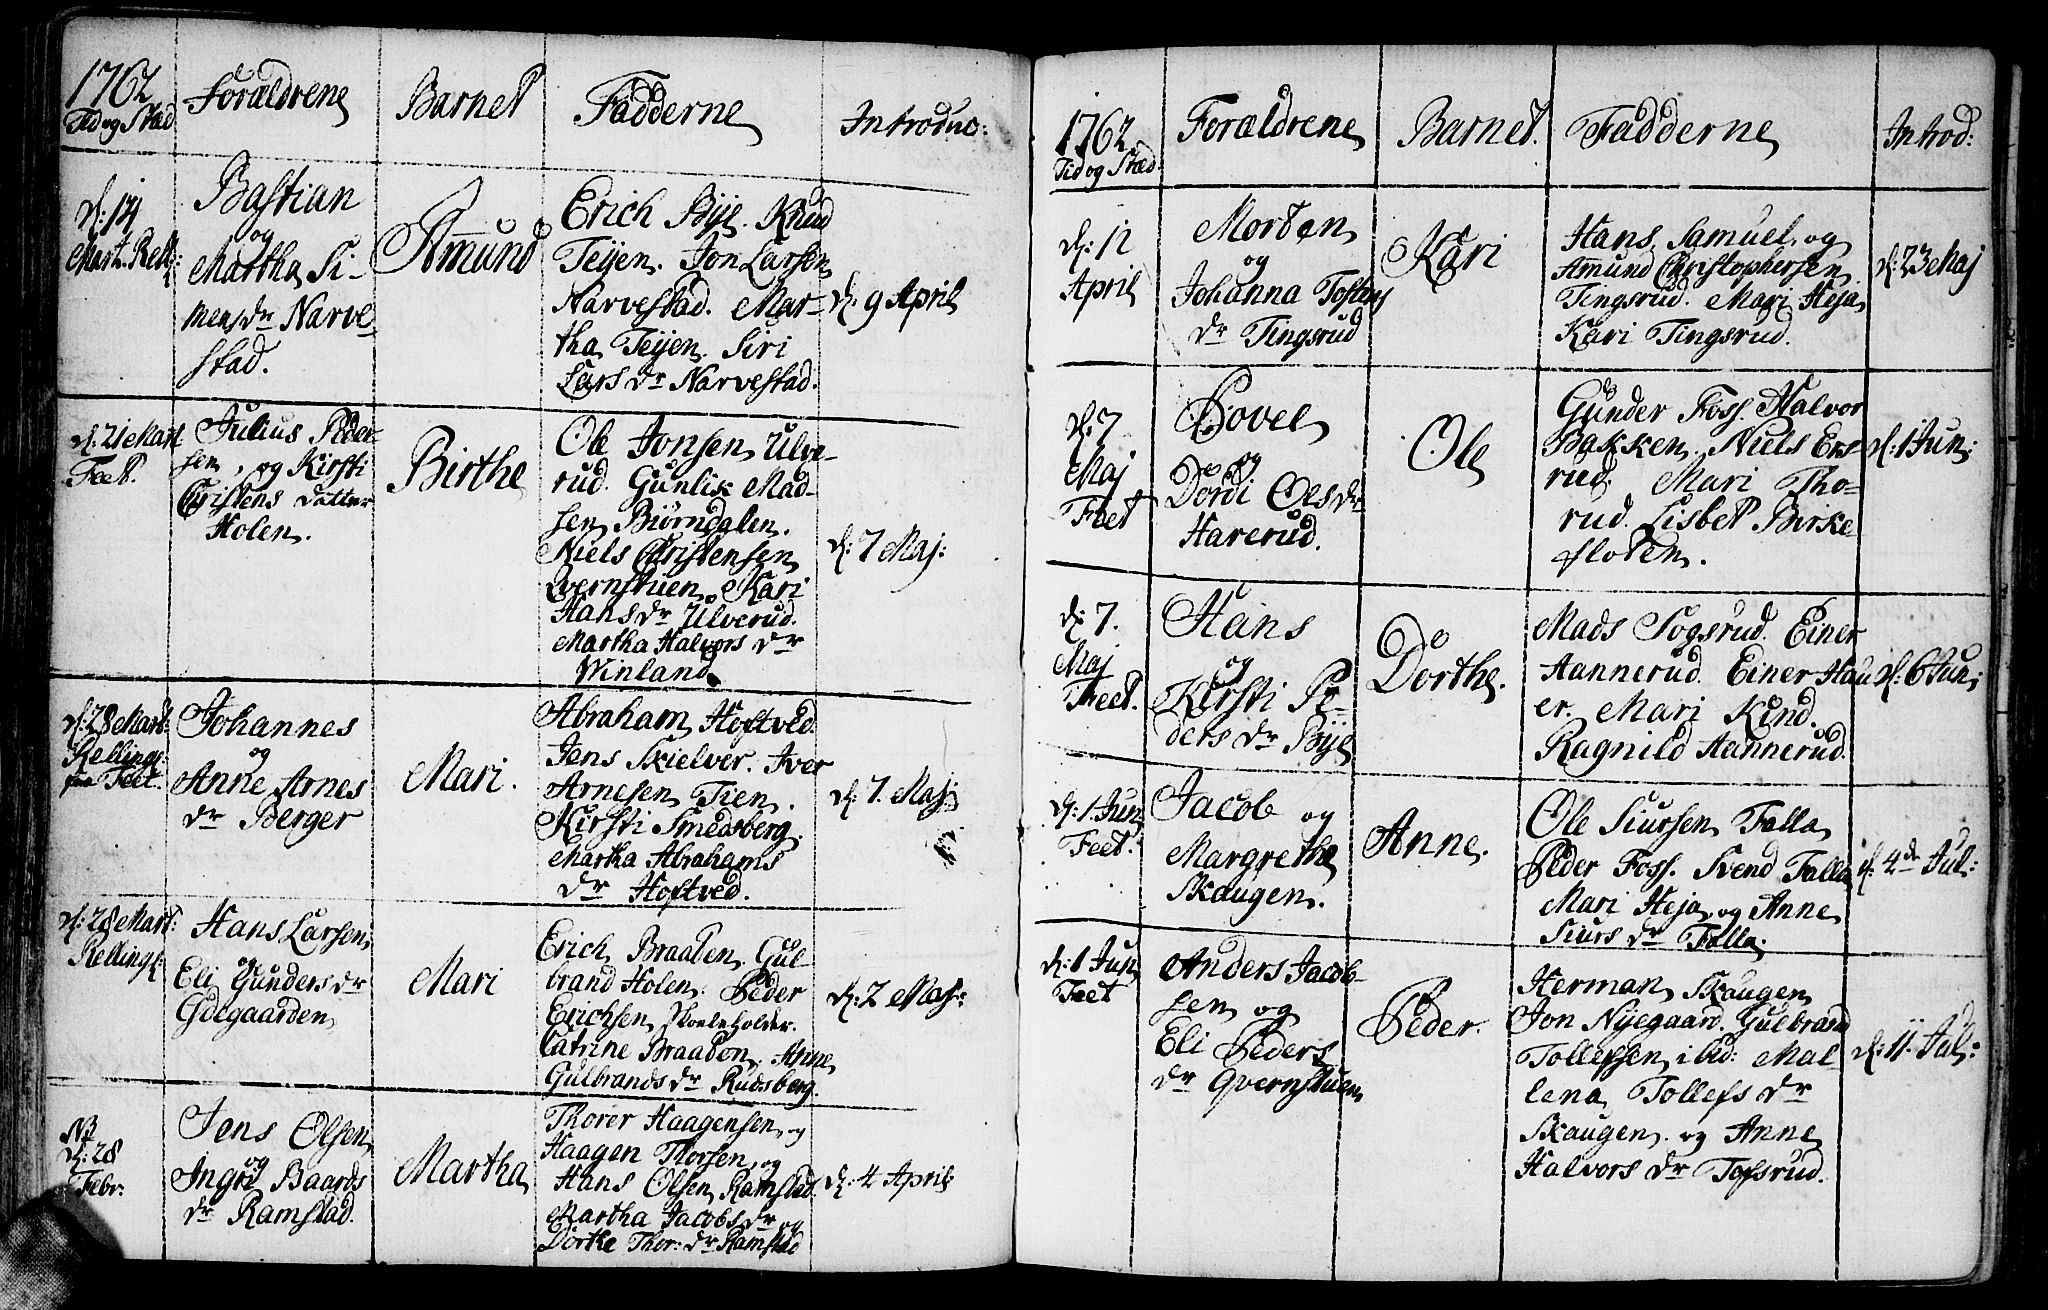 1762
Tid og Stæd
Forældrene
Barnet
Fadderne
Introduc:
d: 14
Mart. Rell:
Bastian
og
Martha Si-
mens dr Narve
stad.
Amund
Erich Bye. Knud
Teijen. Jon Larsen
Narvestad. Mar-
tha Teijen. Siri
Lars dr Narvestad.
d: 9 April
d: 21 Mart
Feet.
Julius Peder-
sen, og Kirsti
Christens Datter
Holen.
Birthe
Ole Jonsen Ulve-
rud. Gunlik Mad-
sen Biørndalen.
Niels Christensen
Qvernstuen. Kari
Hans dr Ulverud.
Martha Halvors dr
Winland.
d: 7 Maj:
d: 28 Mart:
Relling
Feet.
Johannes
og
Anne Arnes
dr Berger
Mari.
Abraham Hoftved.
Jens Skielver. Iver
Arnesen Tien.
Kirsti Smedsberg.
Martha Abrahams
dr Hoftved.
d: 7. Maj:
d: 28 Mart:
Relling:
Hans Larsen
og
Eli Gunders dr
Ødegaarden
Mari
Erich Braaten. Gul-
brand Holen. Peder
Erichsen Skoeleholder.
Catrine Braaten. Anne
Gulbrands dr Rudsberg.
d: 2 Maj:
NB
d: 28
Febr:
Jens Olsen
og
Ingri Baards
dr Ramstad.
Martha
Thorer Haagensen, og
Haagen Thorsen, og
Hans Olsen Ramstad.
Martha Jacobs dr og
Dorthe Thor: dr Ramstad
d: 4 April
1762
Tid og Stæd
Forældrene
Barnet.
Fadderne
Introd:
d: 12
April
Morten
og
Johanna Tostens
dr Tingsrud
Kari
Hans, Samuel, og
Amund Christophersen
Tingsrud. Mari Heja
Kari Tingsrud.
d: 23 Maj
d: 7
Maj
Feet
Povel
og
Dordi Ols dr
Harerud.
Ole
Gunder Foss. Halvor
Bakken. Niels Ers-
rud. Mari Tho-
rud. Lisbet Birke-
floten.
d: 1 Jun:
d: 7.
Maj
Feet.
Hans
og
Kirsti Pe-
ders dr Bije
Dorthe.
Mads Sogsrud. Einer
Aannerud. Einer Hau
er. Mari Kind.
Ragnild Aannerud.
d: 6 Jun:
d: 1 Jun
Feet.
Jacob og
Margrethe
Skaugen.
Anne.
Ole Siursen Falla
Peder Foss. Svend Falla
Mari Heja, og Anne
Siurs dr Falla.
d: 4de Jul:
d: 1 Jun
Feet
Anders Jacob-
sen og
Eli Peders
dr Qvernstuen
Peder.
Herman Skaugen
Jon Nijegaard. Gulbrand
Tollefsen ibid: Mal
lena Tollefs dr
Skaugen. og Anne
Halvors dr Tofsrud.
d: 11. Jul: